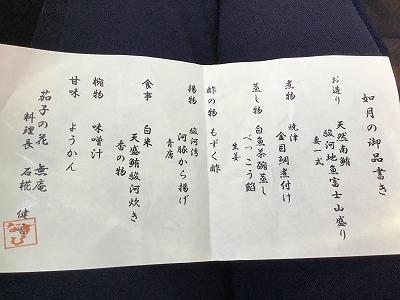 如月の御品書き
お造り 天然南鮪
駿河地魚富士山盛り
妻一式
煮物 焼津
金目鯛煮付け
蒸し物 白魚茶碗蒸し
べっこう餡
生姜
酢の物 もずく酢
揚物 駿河湾
河豚から揚げ
青唐
食事 白米
天盛鮪駿河炊き
香の物
椀物 味噌汁
甘味 ようかん
茄子の花 無庵
料理長 石椛 健